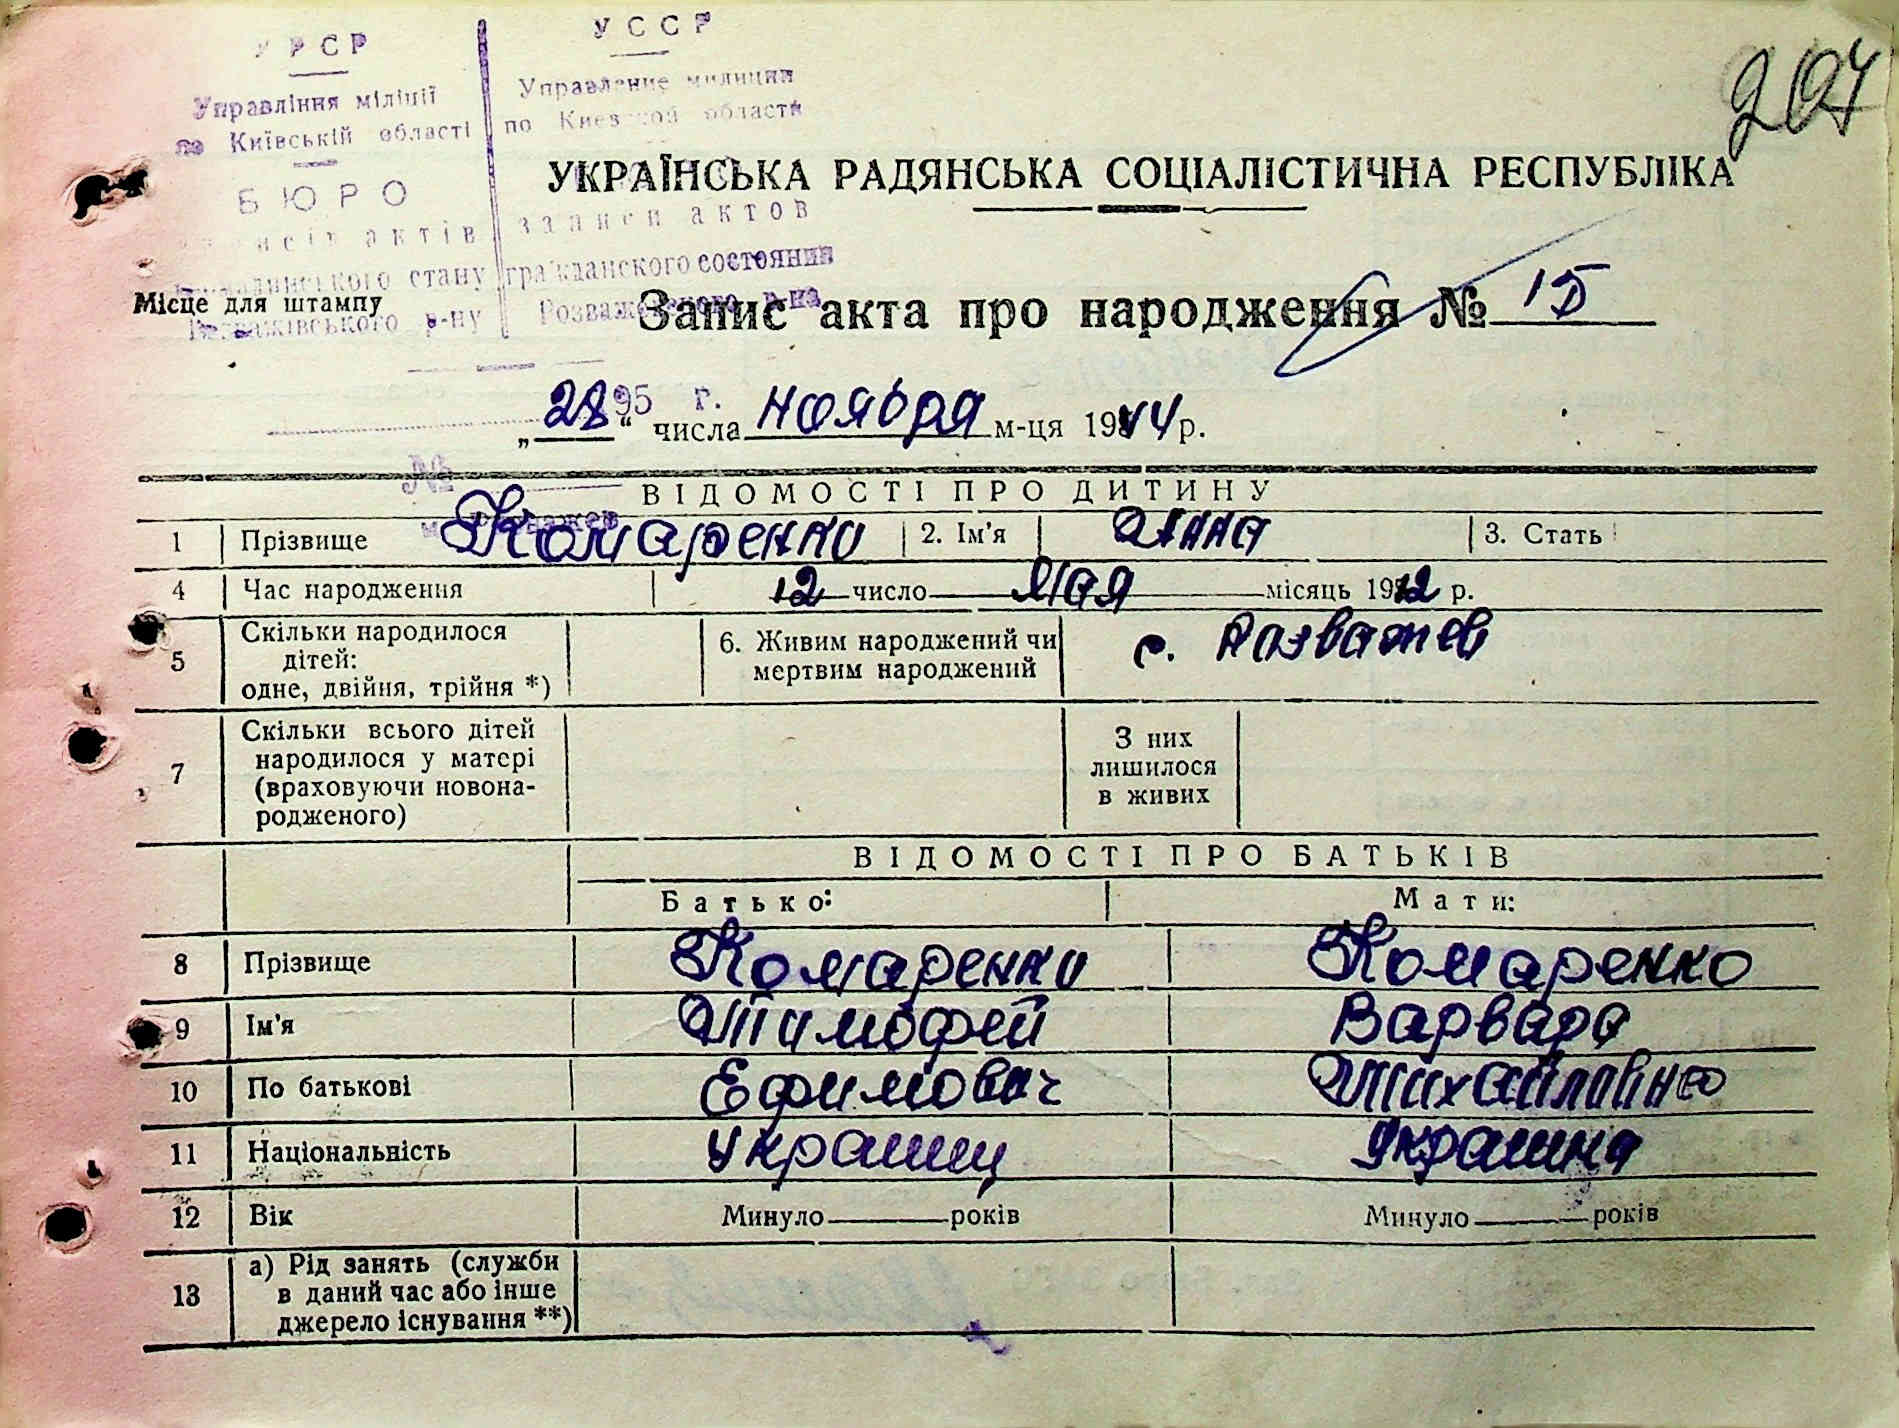 УРСР
Управління міліції
по Київській області
БЮРО
актів
стану
р-ну
УССР
Управление милиции
по Киевской области
записи актов
гражданского состояния
Розважевского р-на
207
УКРАЇНСЬКА РАДЯНСЬКА СОЦІАЛІСТИЧНА РЕСПУБЛІКА
Місце для штампу
Запис акта про народження № 15
195 г.
„28“ числа ноября м-ця 1944 р.
№
ВІДОМОСТІ ПРО ДИТИНУ
1 Прізвище Комаренко 2. Ім'я Анна 3. Стать
4 Час народження 12 число мая місяць 1912 р.
5 Скільки народилося дітей: одне, двійня, трійня *) 6. Живим народжений чи мертвим народжений с. Розважев
7 Скільки всього дітей народилося у матері (враховуючи новонародженого) З них лишилося в живих
ВІДОМОСТІ ПРО БАТЬКІВ
Батько: Мати:
8 Прізвище Комаренко Комаренко
9 Ім'я Тимофей Варвара
10 По батькові Ефимович Михайловна
11 Національність Украинец Украинка
12 Вік Минуло років Минуло років
13 а) Рід занять (служби в даний час або інше джерело існування **)